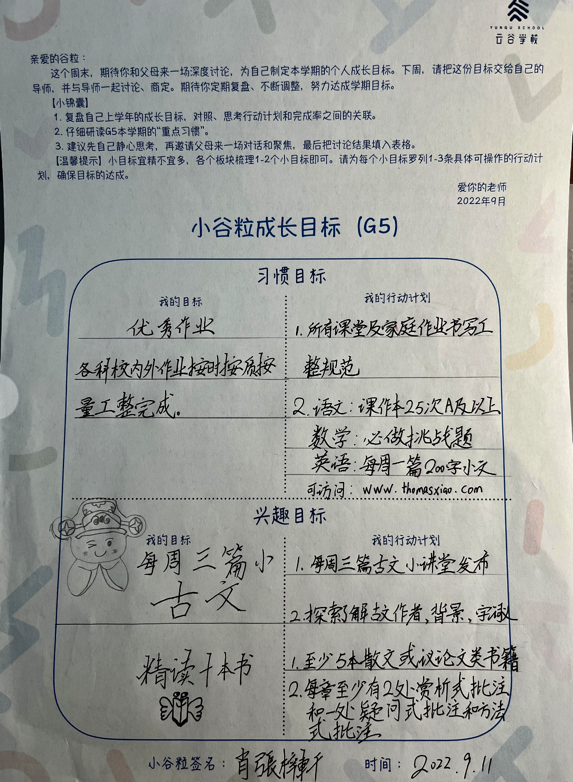 YUNGU SCHOOL
云谷学校
亲爱的谷粒：
这个周末，期待你和父母来一场深度讨论，为自己制定本学期的个人成长目标。下周，请把这份目标交给自己的
导师，并与导师一起讨论、商定。期待你定期复盘、不断调整，努力达成学期目标。
【小锦囊】
1. 复盘自己上学年的成长目标，对照、思考行动计划和完成率之间的关联。
2. 仔细研读G5本学期的“重点习惯”。
3. 建议先自己静心思考，再邀请父母来一场对话和聚焦，最后把讨论结果填入表格。
【温馨提示】小目标宜精不宜多，各个板块梳理1-2个小目标即可。请为每个小目标罗列1-3条具体可操作的行动计
划，确保目标的达成。
爱你的老师
2022年9月
小谷粒成长目标（G5）
习惯目标
我的目标
优秀作业
各科校内外作业按时按质按
量工整完成。
我的行动计划
1. 所有课堂及家庭作业书写工
整规范
2. 语文：课作本25次A及以上
数学：必做挑战题
英语：每周一篇200字小文
可访问：www.thomasxiao.com
兴趣目标
我的目标
每周三篇小
古文
我的行动计划
1. 每周三篇古文小课堂发布
2. 探索了解古文作者，背景，字词
精读十本书
1. 至少5本散文或议论文类书籍
2. 每章至少有2处赏析式批注
和一处疑问式批注和方法
式批注
小谷粒签名：肖張
时间：2022.9.11